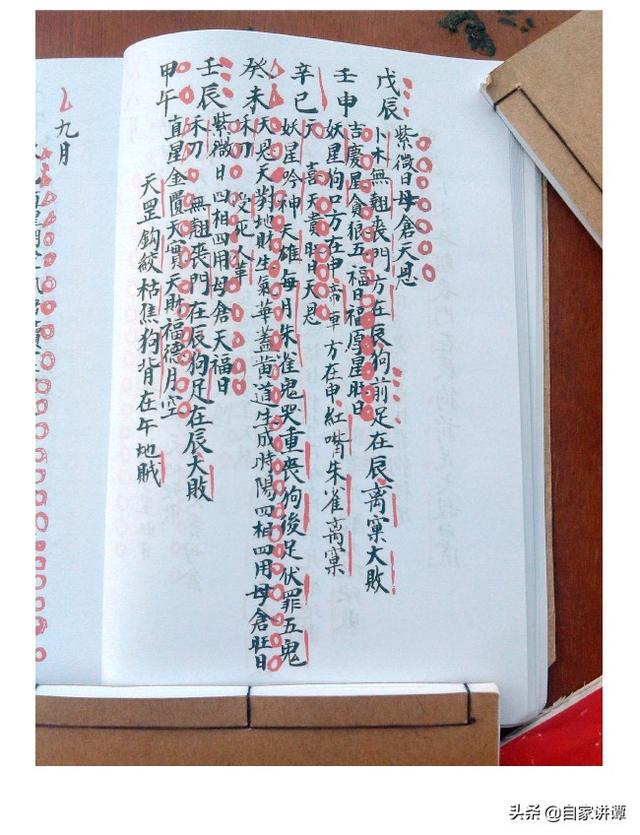 戊辰
紫微日母倉天恩
卜木無翹喪門方在辰狗前足在辰離窠大敗
壬申
吉慶星貪狼五福日福厚星旺日
妖星狗口方在申帝車方在申紅嘴朱雀離窠
辛巳
喜天貴旺日天恩
妖星吟神天雄每月朱雀鬼哭重喪狗後足伏罪五鬼
癸未
天恩天對地財生氣華蓋黃道生成時陽四相四用母倉旺日
禾刀 受死人革
壬辰
紫微日四相四用母倉天福日
禾刀 無翹喪門在辰狗足在辰大敗
甲午
直星金匱天寶天財福德月空
天罡鈎絞枯焦狗背在午地賊
九月
头条 @自家讲谭